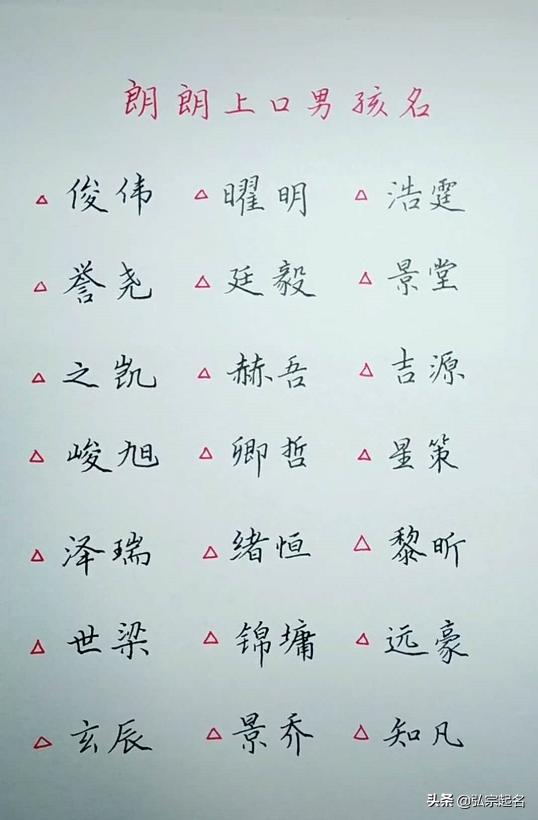 朗朗上口男孩名
△俊伟 △曜明 △浩霆
△誉尧 △廷毅 △景堂
△之凯 △赫吾 △吉源
△峻旭 △卿哲 △星策
△泽瑞 △绪恒 △黎昕
△世梁 △锦墉 △远豪
△玄辰 △景乔 △知凡
头条 @弘宗起名